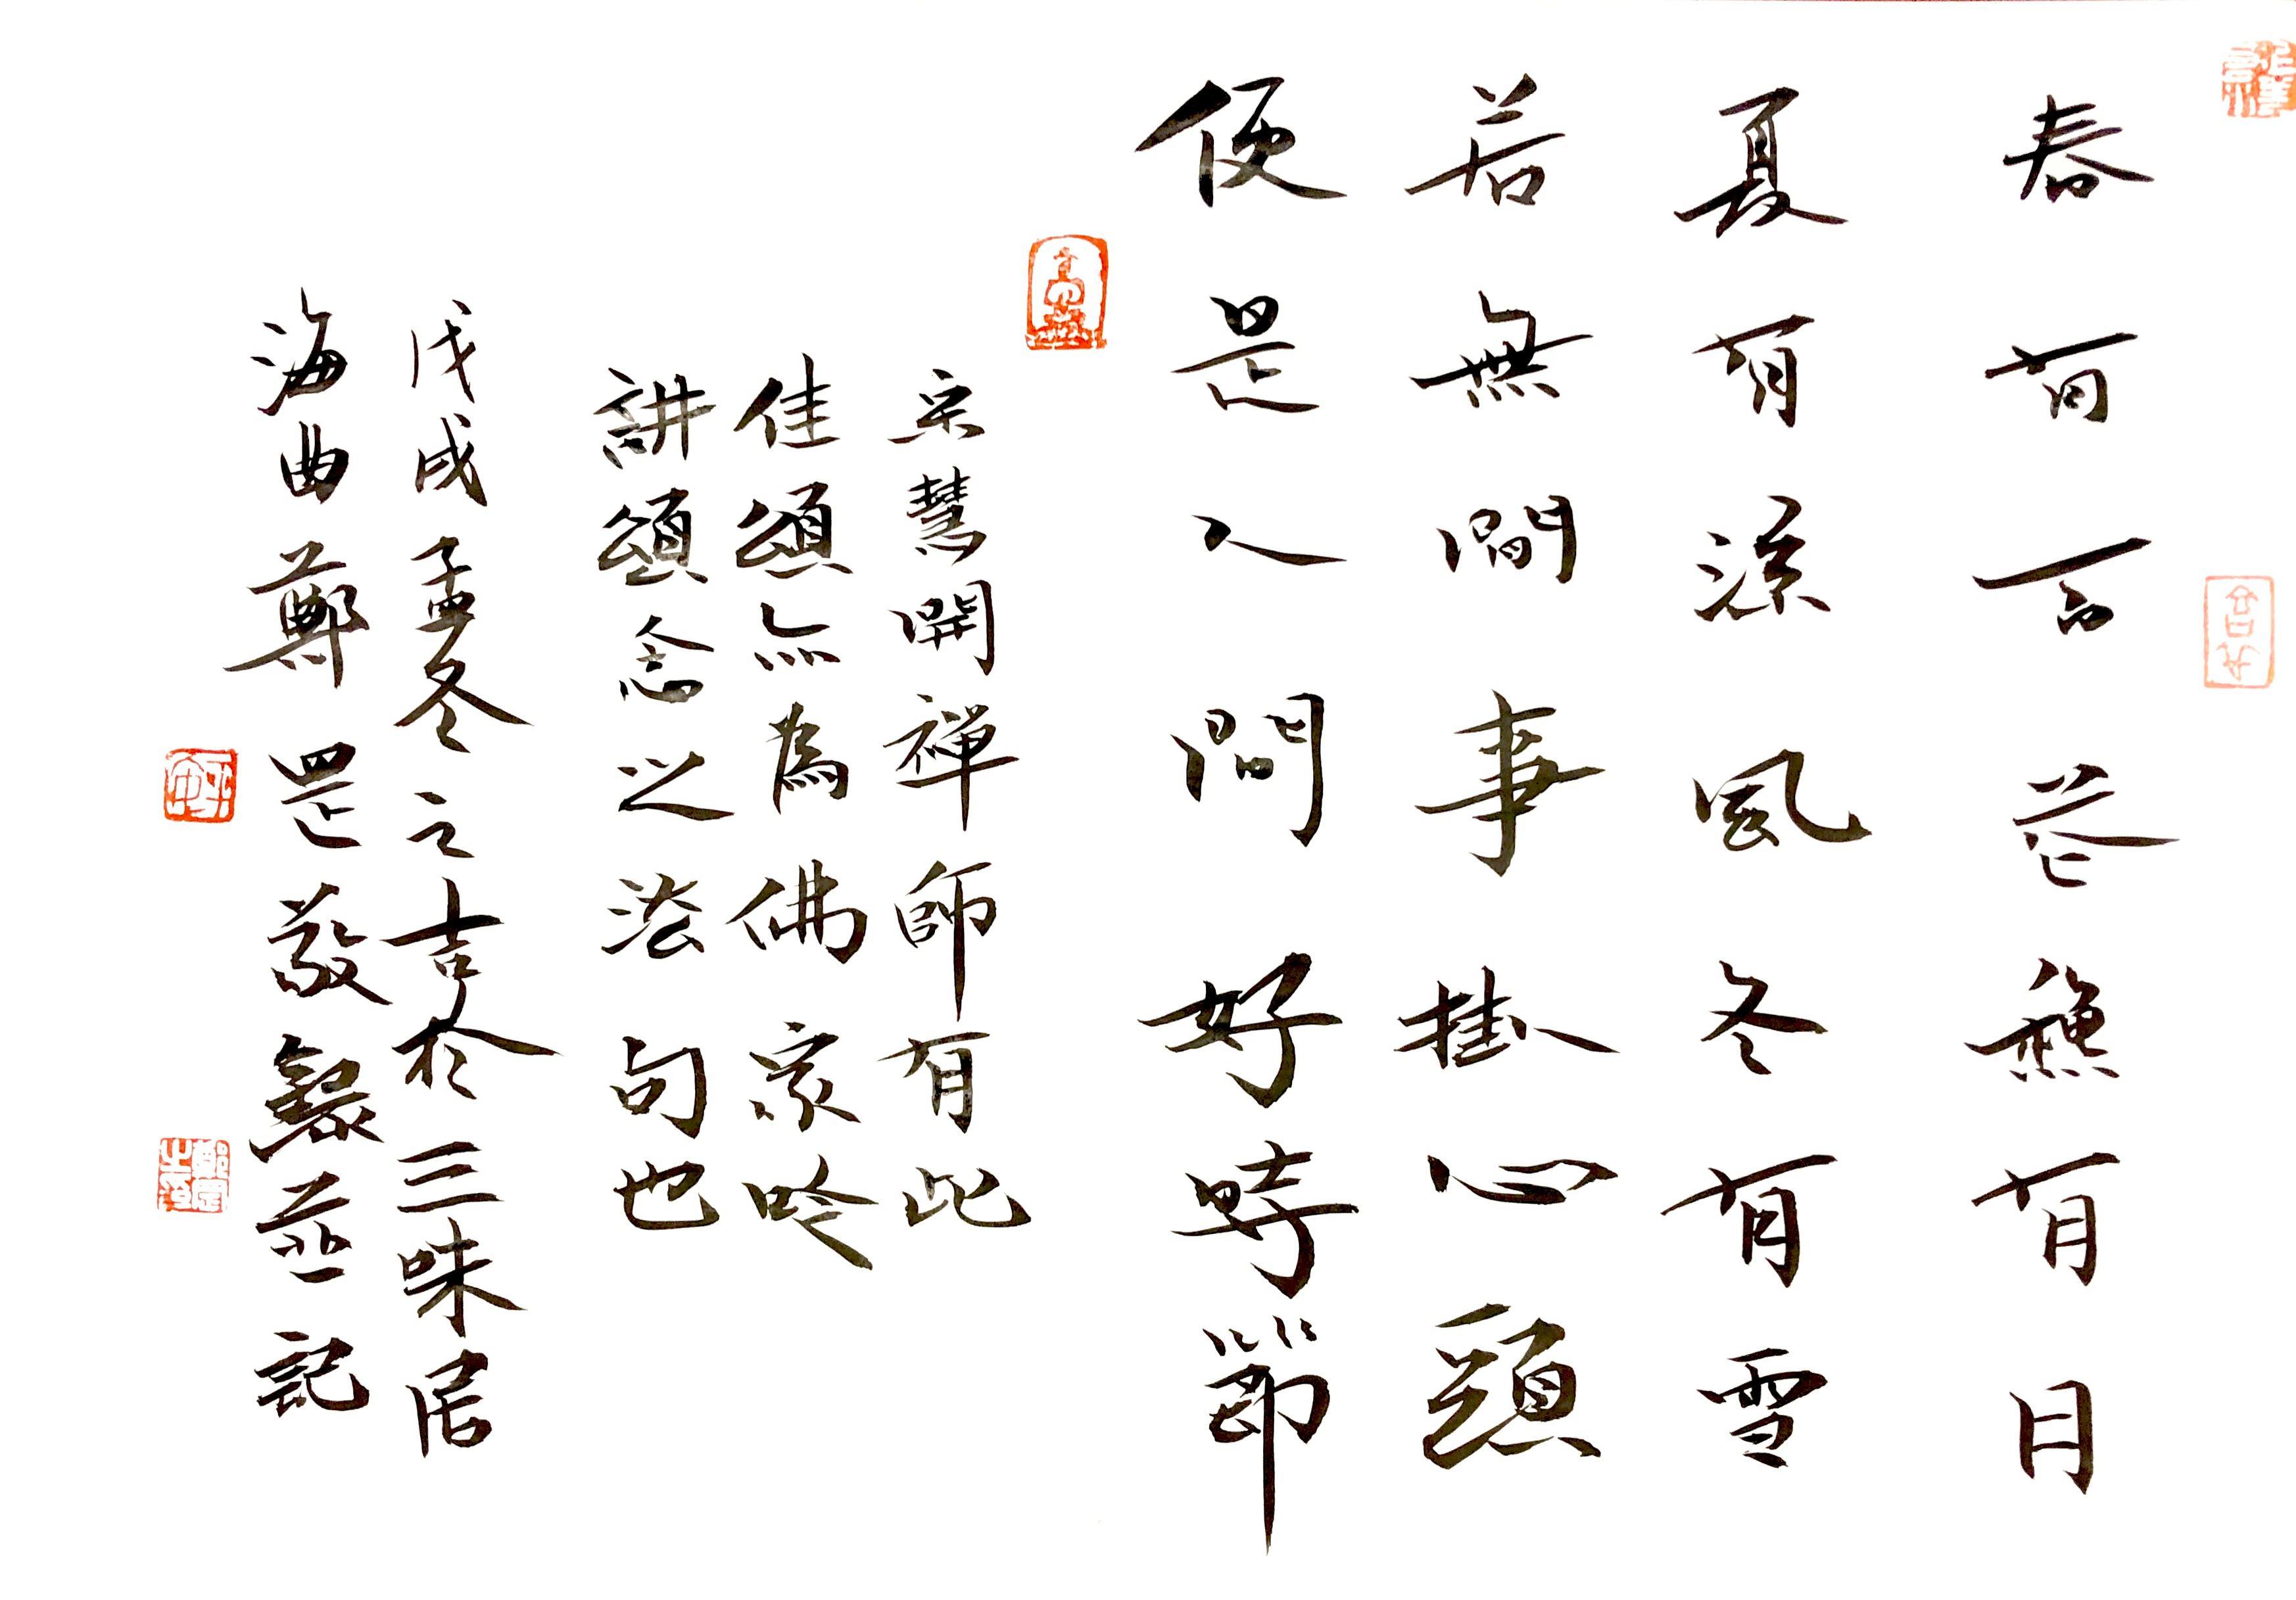 春有百花秋有月
夏有涼風冬有雪
若無閒事掛心頭
便是人間好時節
宋慧開禪師有此
佳頌無為佛家吟
講頌念之法句也
戊戌孟冬之吉於三味居
海曲鄭罡敬錄並記